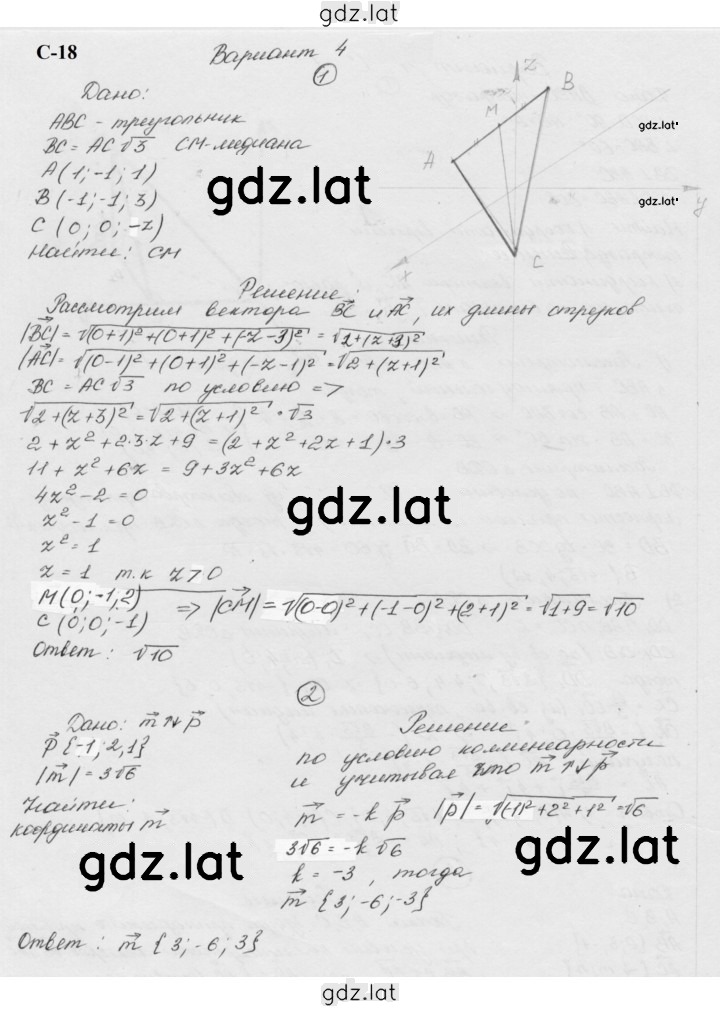 gdz.lat
С-18 Вариант 4
①
Дано:
ABC - треугольник
BC = AC√3 CM-медиана
A(1;-1;1)
B(-1;-1;3)
C(0;0;-z)
Найти: CM
z
B
M
A
y
x
C
gdz.lat
gdz.lat
gdz.lat
Решение:
Рассмотрим вектора BC⃗ и AC⃗, их длины отрезков
|BC⃗| = √((0+1)²+(0+1)²+(-z-3)²) = √(2+(z+3)²)
|AC⃗| = √((0-1)²+(0+1)²+(-z-1)²) = √(2+(z+1)²)
BC = AC√3 по условию =>
√(2+(z+3)²) = √(2+(z+1)²) · √3
2+z²+2·3·z+9 = (2+z²+2z+1)·3
11+z²+6z = 9+3z²+6z
4z²-2=0
z²-1=0
z²=1
z=1 т.к z>0
gdz.lat
M(0;-1;2)
C(0;0;-1)
=> |CM⃗| = √((0-0)²+(-1-0)²+(2+1)²) = √(1+9) = √10
Ответ: √10
②
Дано: m⃗ ↑↓ p⃗
p⃗ {-1;2;1}
|m⃗| = 3√6
Найти:
координаты m⃗
Решение:
по условию коллинеарности
и учитывая что m⃗ ↑↓ p⃗
m⃗ = -k p⃗ |p⃗| = √((-1)²+2²+1²) = √6
3√6 = -k√6
k = -3, тогда
m⃗ {3;-6;-3}
gdz.lat
gdz.lat
Ответ: m⃗ {3;-6;3}
gdz.lat